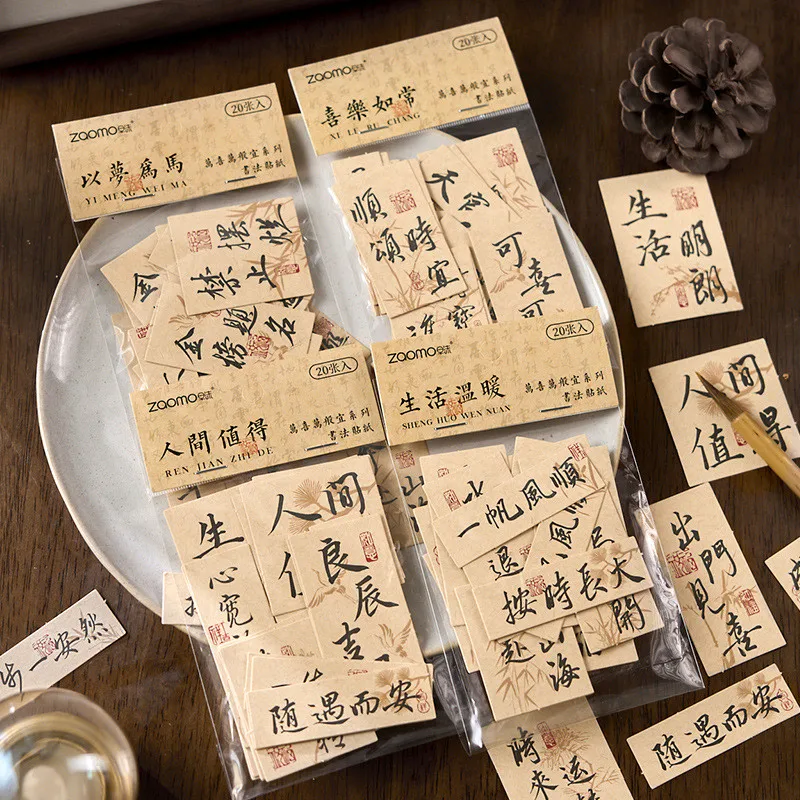 zaomo
20张入
以夢爲馬
YI MENG WEI MA
萬喜萬般宜系列
書法貼紙
zaomo
20张入
喜樂如常
XI LE RU CHANG
萬喜萬般宜系列
書法貼紙
擺
禁止
金
金榜題名
順頌時宜
可喜可
生活明朗
zaomo
20张入
人間值得
REN JIAN ZHI DE
萬喜萬般宜系列
書法貼紙
zaomo
20张入
生活溫暖
SHENG HUO WEN NUAN
萬喜萬般宜系列
書法貼紙
人間
值得
生
心寬
人間
良辰吉
随遇而安
一帆風順
風順
退
按時長大
開
赴山海
出門見喜
一安然
時來运
随遇而安